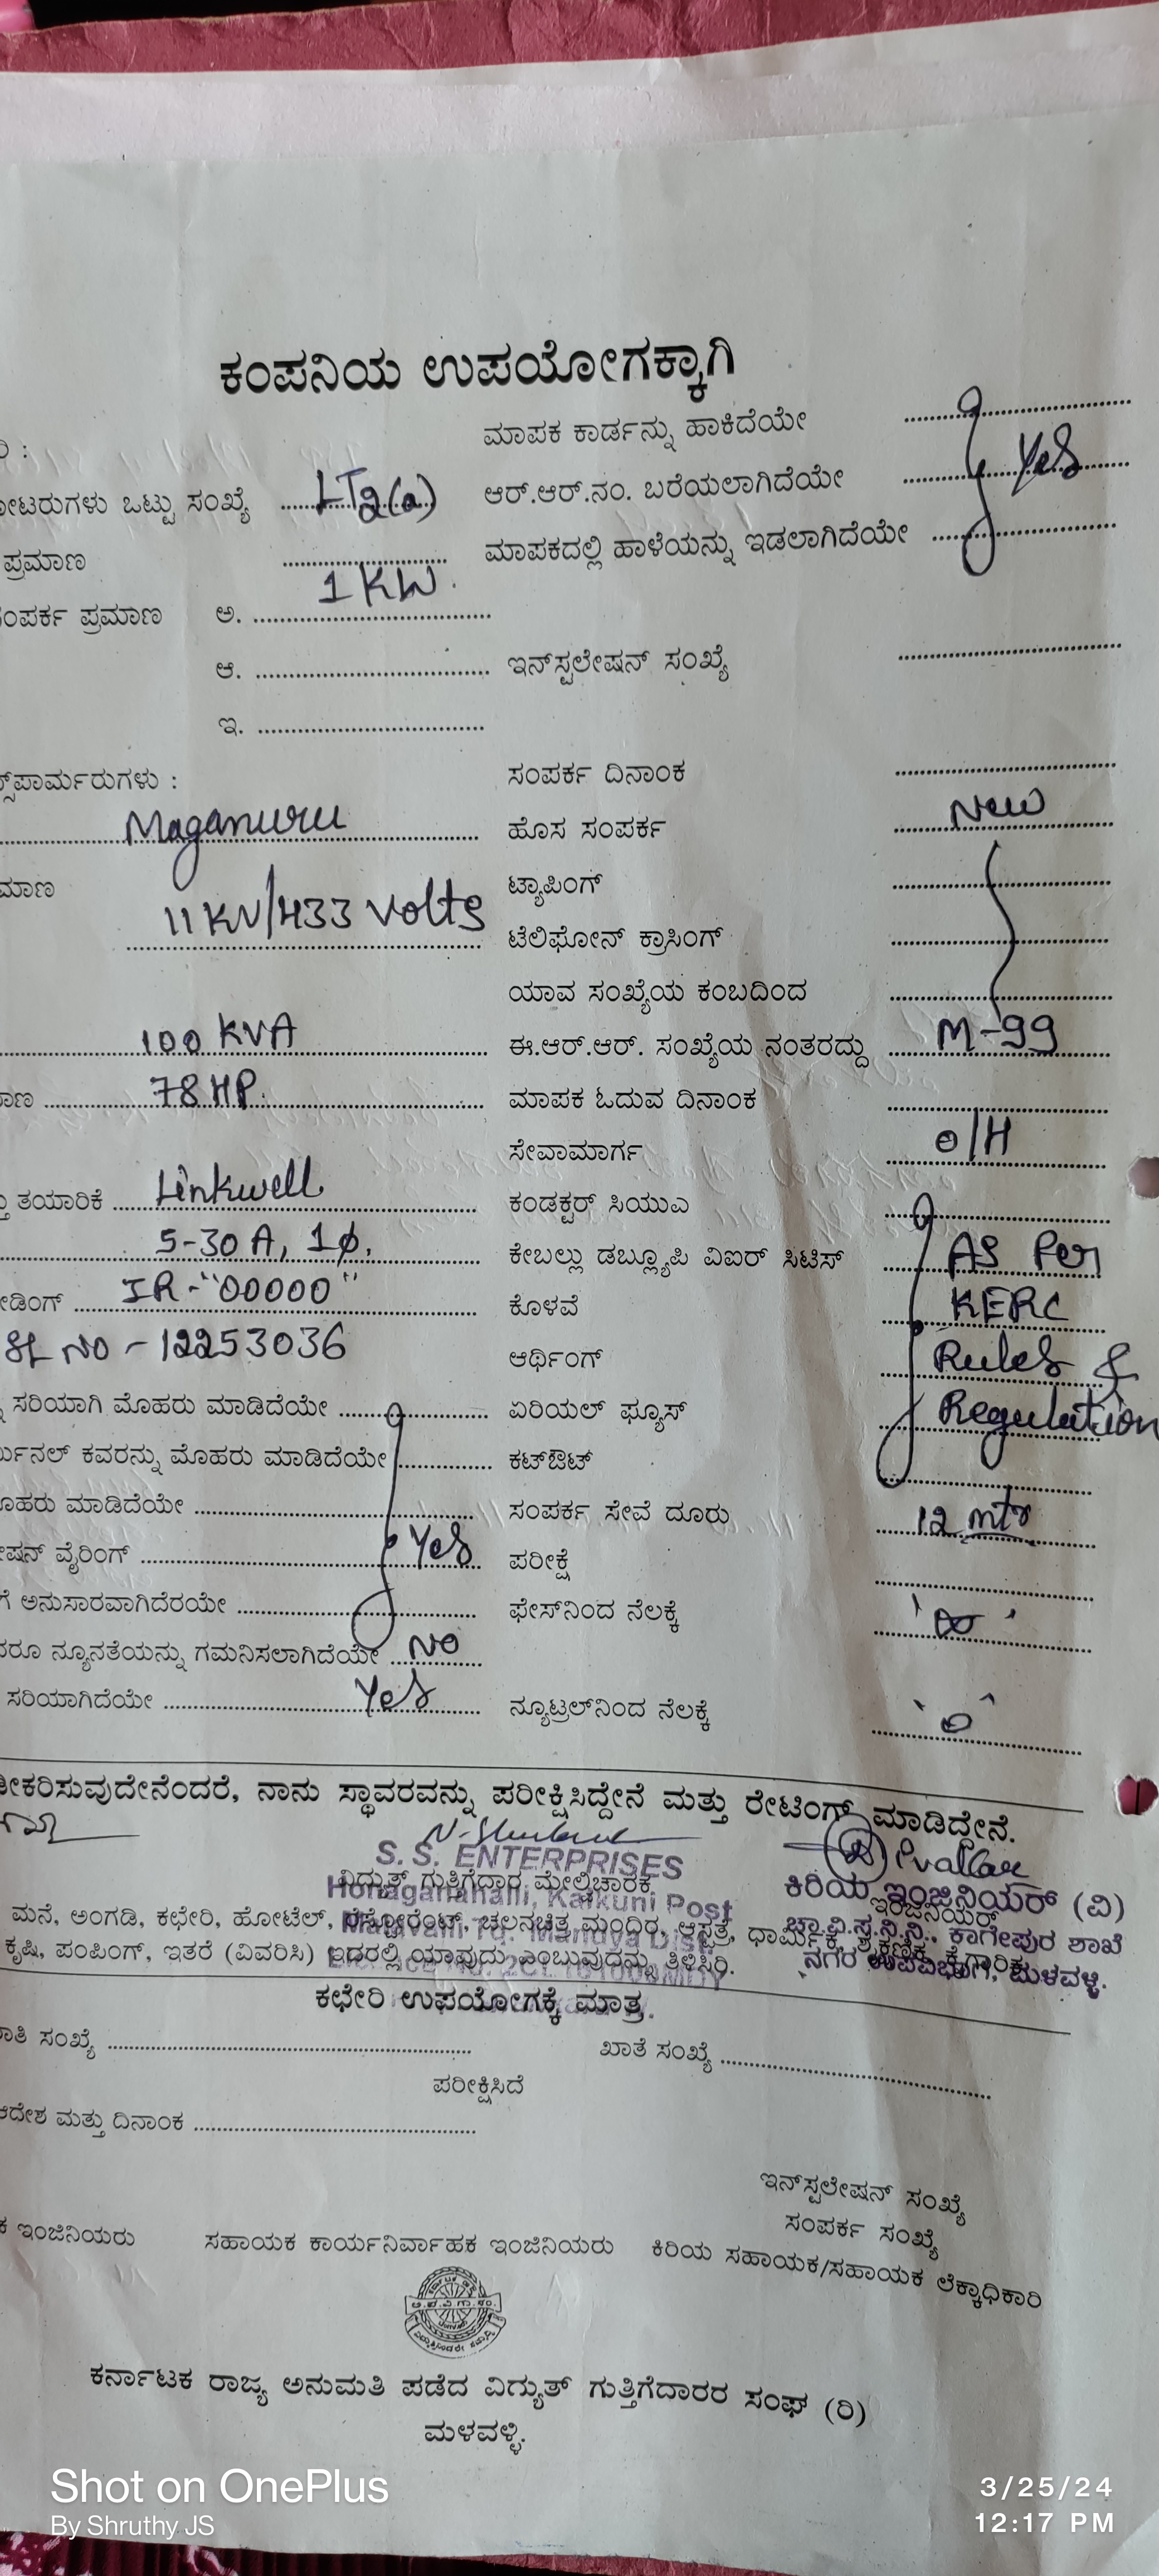 ಕಂಪನಿಯ ಉಪಯೋಗಕ್ಕಾಗಿ
ಮಾಪಕ ಕಾರ್ಡನ್ನು ಹಾಕಿದೆಯೇ
ಒಟ್ಟು ಸಂಖ್ಯೆ LT2(a) ಆರ್.ಆರ್.ನಂ. ಬರೆಯಲಾಗಿದೆಯೇ Yes
ಪ್ರಮಾಣ ಮಾಪಕದಲ್ಲಿ ಹಾಳೆಯನ್ನು ಇಡಲಾಗಿದೆಯೇ
ಪ್ರಮಾಣ ಅ. 1 KW
ಆ. ಇನ್‌ಸ್ಟಲೇಷನ್ ಸಂಖ್ಯೆ
ಇ.
ಸಂಪರ್ಕ ದಿನಾಂಕ
Maganuru ಹೊಸ ಸಂಪರ್ಕ New
ಟ್ಯಾಪಿಂಗ್
11 KV/433 Volts ಟೆಲಿಫೋನ್ ಕ್ರಾಸಿಂಗ್
ಯಾವ ಸಂಖ್ಯೆಯ ಕಂಬದಿಂದ
100 KVA ಈ.ಆರ್.ಆರ್. ಸಂಖ್ಯೆಯ ನಂತರದ್ದು M-99
78 HP ಮಾಪಕ ಓದುವ ದಿನಾಂಕ
ಸೇವಾಮಾರ್ಗ O/H
ತಯಾರಿಕೆ Linkwell ಕಂಡಕ್ಟರ್ ಸಿಯುಎ
5-30 A, 1φ, ಕೇಬಲ್ಲು ಡಬ್ಲ್ಯೂಪಿ ವಿಐರ್ ಸಿಟಿಸ್ AS Per
IR-"00000" ಕೊಳವೆ KERC
SL NO - 12253036 ಆರ್ಥಿಂಗ್ Rules &
ಸರಿಯಾಗಿ ಮೊಹರು ಮಾಡಿದೆಯೇ ಏರಿಯಲ್ ಫ್ಯೂಸ್ Regulation
ಕವರನ್ನು ಮೊಹರು ಮಾಡಿದೆಯೇ ಕಟ್‌ಔಟ್
ಮಾಡಿದೆಯೇ ಸಂಪರ್ಕ ಸೇವೆ ದೂರು 12 mtr
ವೈರಿಂಗ್ Yes ಪರೀಕ್ಷೆ
ಅನುಸಾರವಾಗಿದೆರಯೇ ಫೇಸ್‌ನಿಂದ ನೆಲಕ್ಕೆ ∞
ನ್ಯೂನತೆಯನ್ನು ಗಮನಿಸಲಾಗಿದೆಯೇ NO
ಸರಿಯಾಗಿದೆಯೇ Yes ನ್ಯೂಟ್ರಲ್‌ನಿಂದ ನೆಲಕ್ಕೆ 0
ನಾನು ಸ್ಥಾವರವನ್ನು ಪರೀಕ್ಷಿಸಿದ್ದೇನೆ ಮತ್ತು ರೇಟಿಂಗ್ ಮಾಡಿದ್ದೇನೆ.
S. S. ENTERPRISES
ವಿದ್ಯುತ್ ಗುತ್ತಿಗೆದಾರ ಮೇಲ್ವಿಚಾರಕ ಕಿರಿಯ ಇಂಜಿನಿಯರ್ (ವಿ)
Honaganahalli, Kalkuni Post
ಮನೆ, ಅಂಗಡಿ, ಕಛೇರಿ, ಹೋಟೆಲ್, ರೆಸ್ಟೋರೆಂಟ್, ಚಲನಚಿತ್ರ ಮಂದಿರ, ಆಸ್ಪತ್ರೆ, ಧಾರ್ಮಿಕ ಚಾ.ವಿ.ಸ.ನಿ.ನಿ., ಕಾಗೇಪುರ ಶಾಖೆ
ಕೃಷಿ, ಪಂಪಿಂಗ್, ಇತರೆ (ವಿವರಿಸಿ) ಇದರಲ್ಲಿ ಯಾವುದು ಎಂಬುವುದನ್ನು ತಿಳಿಸಿರಿ. ನಗರ ಉಪವಿಭಾಗ, ಮಳವಳ್ಳಿ.
ಕಛೇರಿ ಉಪಯೋಗಕ್ಕೆ ಮಾತ್ರ.
ಸಂಖ್ಯೆ ಖಾತೆ ಸಂಖ್ಯೆ
ಪರೀಕ್ಷಿಸಿದೆ
ಆದೇಶ ಮತ್ತು ದಿನಾಂಕ
ಇನ್‌ಸ್ಟಲೇಷನ್ ಸಂಖ್ಯೆ
ಸಂಪರ್ಕ ಸಂಖ್ಯೆ
ಇಂಜಿನಿಯರು ಸಹಾಯಕ ಕಾರ್ಯನಿರ್ವಾಹಕ ಇಂಜಿನಿಯರು ಕಿರಿಯ ಸಹಾಯಕ/ಸಹಾಯಕ ಲೆಕ್ಕಾಧಿಕಾರಿ
ಕರ್ನಾಟಕ ರಾಜ್ಯ ಅನುಮತಿ ಪಡೆದ ವಿದ್ಯುತ್ ಗುತ್ತಿಗೆದಾರರ ಸಂಘ (ರಿ)
ಮಳವಳ್ಳಿ.
Shot on OnePlus
By Shruthy JS
3/25/24
12:17 PM